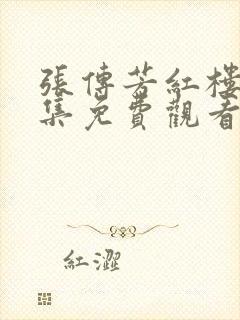 張傳芳紅樓
集免費觀看
紅澀